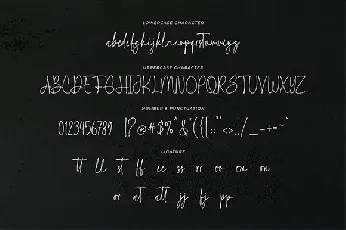 LOWERCASE CHARACTER
abcdefghijklmnopqrstuvwxyz
UPPERCASE CHARACTER
ABCDEFGHIJKLMNOPQRSTUVWXYZ
NUMBER & PUNCTUATION
0123456789 !?@#$%^&*({[:;"'<>,./_-+=~
LIGATURE
tt ll st ff ee ss rr er ex on
or at att jj fj pp